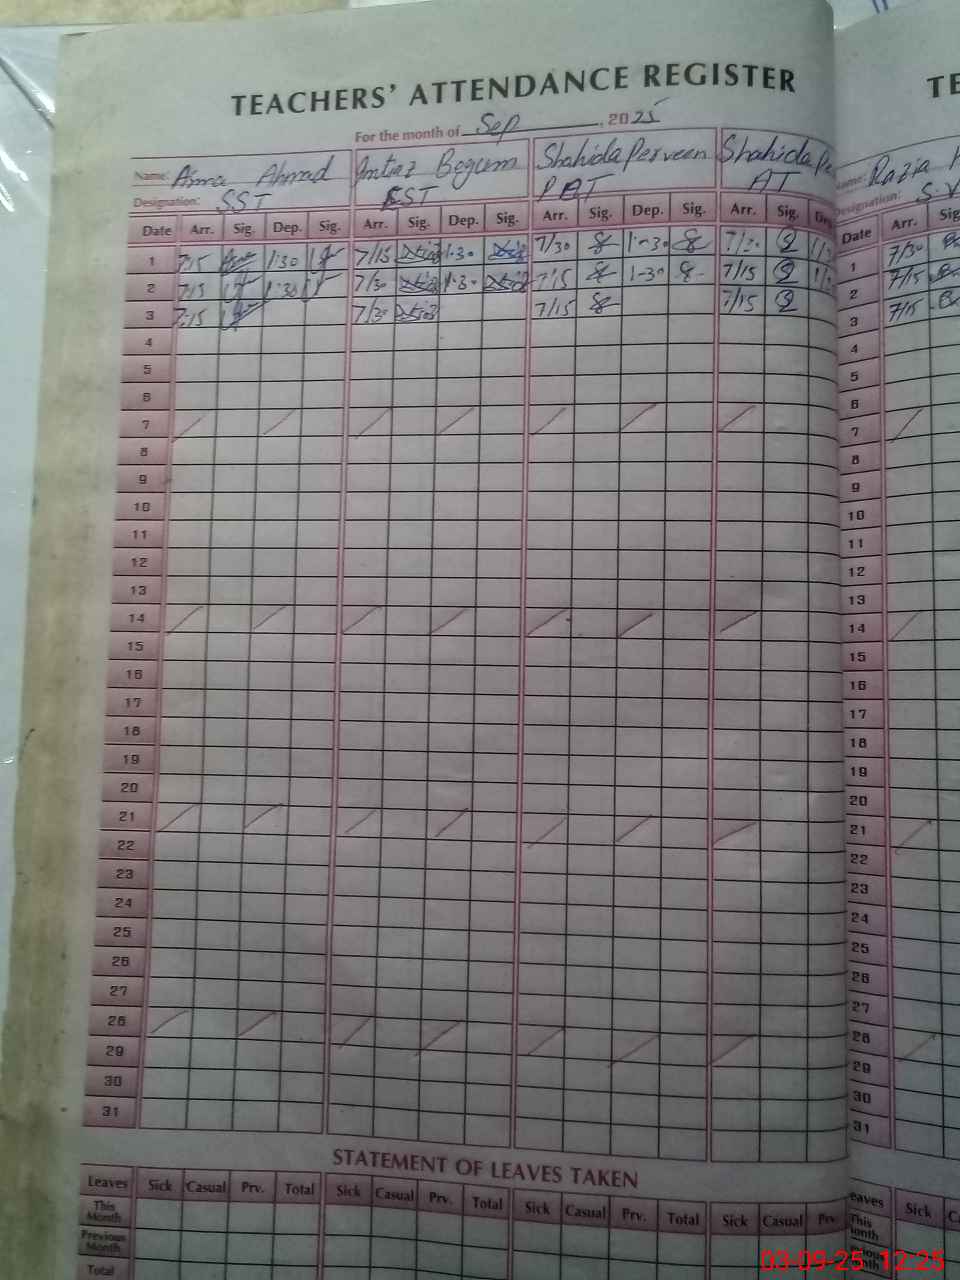 TEACHERS' ATTENDANCE REGISTER
For the month of Sep, 2025
Name: Ahmad Imtiaz Begum Shahida Perveen Shahida Pe
Designation: SST SST PET AT
Date Arr. Sig. Dep. Sig. Arr. Sig. Dep. Sig. Arr. Sig. Dep. Sig. Arr. Sig.
1 7:15 1:30 7/15 1.30 7/30 1-30
2 7:15 1:30 7/30 1.30 7:15 1-30 7/15
3 7:15 7/30 7/15 7/15
4
5
6
7
8
9
10
11
12
13
14
15
16
17
18
19
20
21
22
23
24
25
26
27
28
29
30
31
STATEMENT OF LEAVES TAKEN
Leaves Sick Casual Prv. Total Sick Casual Prv. Total Sick Casual Prv. Total Sick Casual Prv.
This Month
Previous Month
Total
TE
Name: Razia
Designation: S.V
Date Arr. Sig
1 7/30
2 7/15
3 7/15
4
5
6
7
8
9
10
11
12
13
14
15
16
17
18
19
20
21
22
23
24
25
26
27
28
29
30
31
eaves Sick C
This
onth
03-09-25 12:25